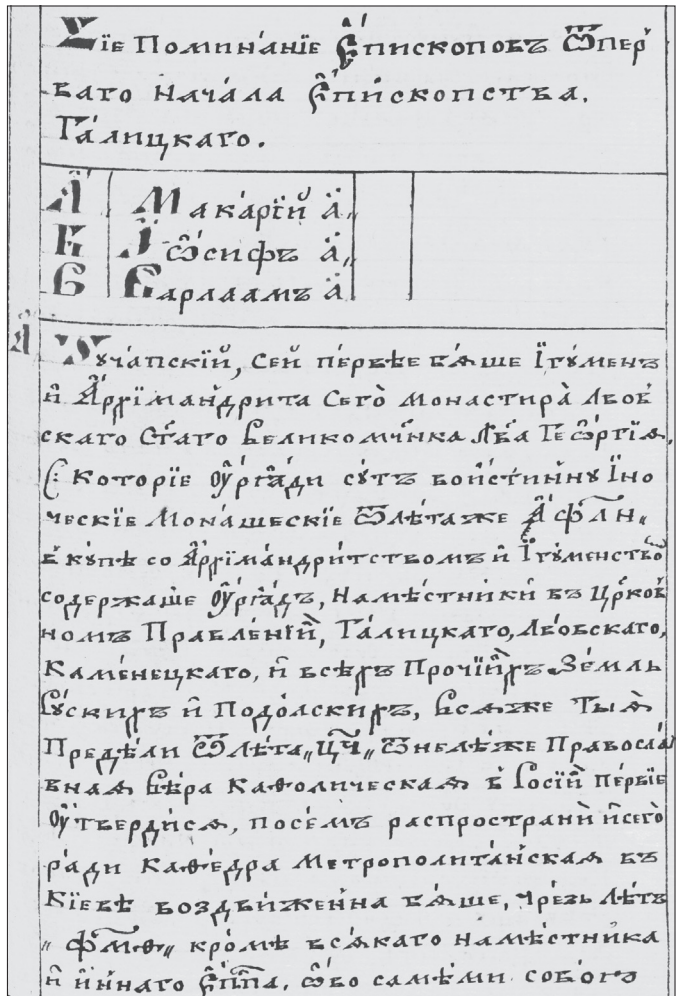 Сїе Помина́нїе Є҆пископовъ Ѿпер
ваго Нача́ла Є҆пи́скопства.
Га́лицкаго.
А҃ Мака́рїй а҃,,
Б І҆ѡ́сифъ а҃,,
В Варлаамъ а҃
а҃ Тꙋча́пскїй, Сей пе́рвѣе бѧ́ше Ігꙋ́менъ
и҆ А҆рхїмандрита Сего̀ Монастира̀ Лвов
скаго Ст҃аго Великомч҃нка Лв҃а Геѡ́ргїѧ.
(: Которїе ᲂу҆рѧ́ди сꙋ́тъ вои́стиннꙋ Іно
ческїе Мона́шескїе Ѿлѣ́таже҆ а҆ф҃лн,,
вкꙋ́пѣ со А҆рхїма́ндри́тствомъ и҆ Ігꙋ́менство
содержаше ᲂу҆рѧ́дъ, Намѣ́стникѝ въ Цр҃ков
номъ Правле́нїй, Га́лицкаго, Лво́вскаго,
Каме́нецкаго, и҆ всѣ́хъ Прочїи́хъ Зе́мль
Рꙋ́скихъ и҆ Подо́лскихъ, Всѧ́же Тыѧ̀
Предѣ́ли Ѿлѣ́та,,цч҃,, Ѿнелѣ́же Правосла́
внаѧ Вѣ́ра Каѳолическаѧ в Росїй пе́рвїе
ᲂу҆тверди́сѧ, посе́мъ распространѝ и҆сего̀
ра́ди Каѳе́дра Метрополита́нскаѧ въ
Кїевѣ воздви́женна бѧ́ше, чрезъ Лѣ́тъ
,,фм҃ѳ,, кро́мѣ всѧ́каго намѣ́стника
и҆ и҆́ннаго Є҆пп҃а, ѡ҆́во саме́ми собого